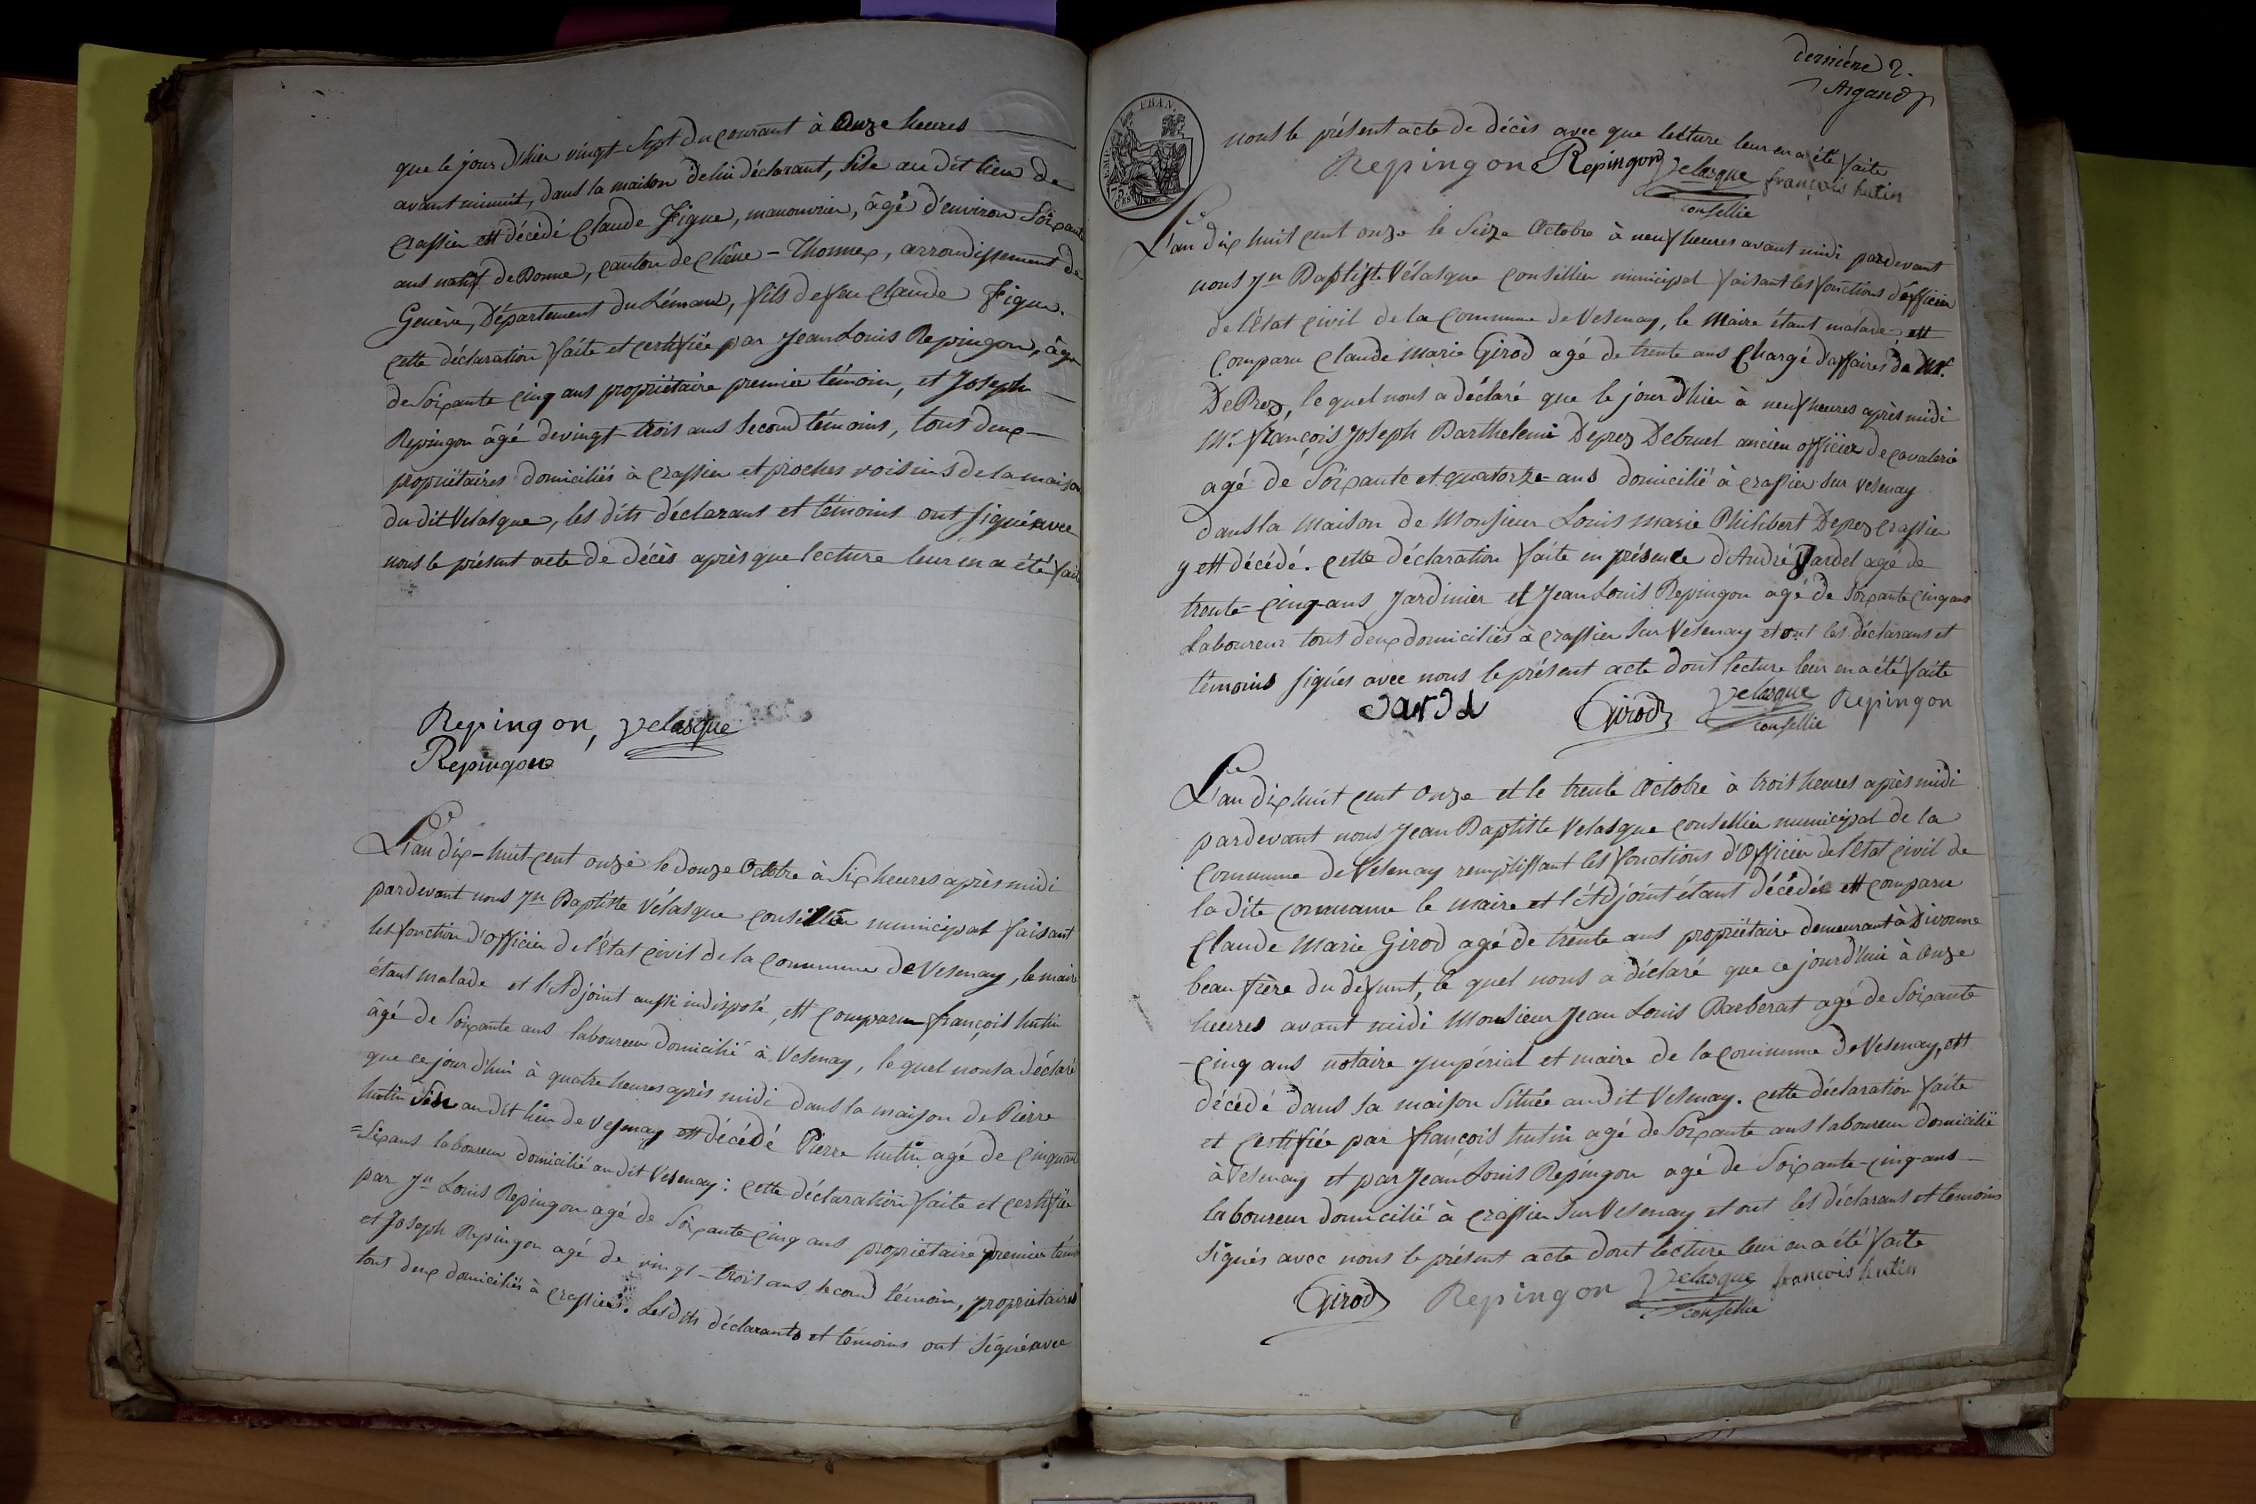 que le jour d'hier vingt-sept du courant à Onze heures
avant minuit, dans la maison de lui déclarant, sise au dit lieu de
Crassier est décédé Claude Figue, manouvrier, âgé d'environ Soixante
ans natif de Bonne, canton de Chêne-Thonnex, arrondissement de
Genève, Département du Léman, fils de feu Claude Figue.
cette déclaration faite et certifiée par Jean Louis Repingon, âgé
de Soixante cinq ans propriétaire premier témoin, et Joseph
Repingon âgé de vingt-trois ans second témoins, tous deux
propriétaires domiciliés à Crassier et proches voisins de la maison
du dit Velasque, les dits déclarans et témoins ont signé avec
nous le présent acte de décès après que lecture leur en a été fait
Repingon, Velasque
Repingon
L'an dix-huit-cent onze le douze Octobre à Six heures après midi
pardevant nous Jn Baptiste Vélasque conseiller municipal faisant
les fonction d'officier de l'état civil de la commune de Vesenay, le maire
étant malade et l'Adjoint aussi indisposé, est comparu françois hutin
âgé de Soixante ans laboureur domicilié à Vesenay, lequel nous a déclaré
que ce jourd'hui à quatre heures après midi dans la maison de Pierre
hutin sise au dit lieu de Vesenay est décédé Pierre hutin agé de cinquante
=Six ans laboureur domicilié au dit Vesenay: cette déclaration faite et certifiée
par Jn Louis Repingon agé de Soixante cinq ans propriétaire premier témoin
et Joseph Repingon agé de vingt-trois ans second témoin, propriétaires
tous deux domiciliés à Crassier. Les dits déclarants et témoins ont signé avec
dernière 2.
Argand
nous le présent acte de décès avec que lecture leur en a été faite
Repingon Repingon Velasque françois hutin
consellie
L'an dix huit cent onze le Seize Octobre à neuf heures avant midi pardevant
nous Jn Baptiste Vélasque conseillier municipal faisant les fonctions d'officier
de l'état civil de la commune de Vesenay, le Maire étant malade, est
comparu Claude Marie Girod agé de trente ans Chargé d'affaires de Mr.
DePrez, lequel nous a déclaré que le jour d'hier à neuf heures après midi
Mr. françois Joseph Barthelemi Deprez Debruel ancien officier de cavalerie
agé de Soixante et quatorze ans domicilié à Crassier sur Vesenay
dans la maison de Monsieur Louis Marie Philibert Deprez Crassier
y est décédé. cette déclaration faite en présence d'André Jardel agé de
trente-cinq ans Jardinier et Jean Louis Repingon agé de Soixante cinq ans
Laboureur tous deux domiciliés à Crassier Sur Vesenay et ont les déclarans et
témoins signés avec nous le présent acte dont lecture leur en a été faite
Girod Velasque Repingon
consellie
L'an dix huit cent onze et le trente Octobre à trois heures après midi
pardevant nous Jean Baptiste Velasque consellier municipal de la
Commune de Vesenay remplissant les fonctions d'Officier de l'état civil de
la dite commune le maire et l'Adjoint étant décédés est comparu
Claude Marie Girod agé de trente ans propriétaire demeurant à Divonne
beau frère du defunt, le quel nous a déclaré que ce jourd'hui à onze
heures avant midi Monsieur Jean Louis Barberat agé de Soixante
-cinq ans notaire Impérial et maire de la commune de Vesenay, est
décédé dans sa maison située au dit Vesenay. cette déclaration faite
et certifiée par françois hutin agé de Soixante ans laboureur domicilié
à Vesenay et par Jean Louis Repingon agé de Soixante-cinq ans
laboureur domicilié à Crassier Sur Vesenay et ont les déclarans et temoins
signés avec nous le présent acte dont lecture leur en a été faite
Girod Repingon Velasque françois hutin
consellie